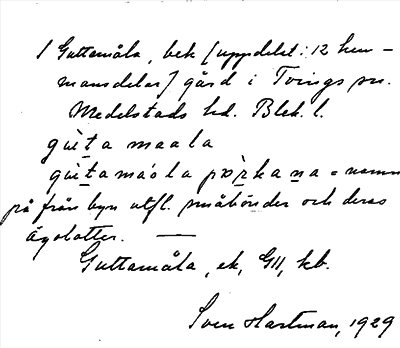 1 Guttamåla, bek [uppdelat: 12 hem-
mansdelar] gård i Tvings sn.
Medelstads hd. Blek. l.
gùta maala
gùtamáola pòrkana = namn
på från byn utfl. småbönder och deras
ägolotter. —
Guttamåla, ek, GII, kb.
Sven Hartman, 1929